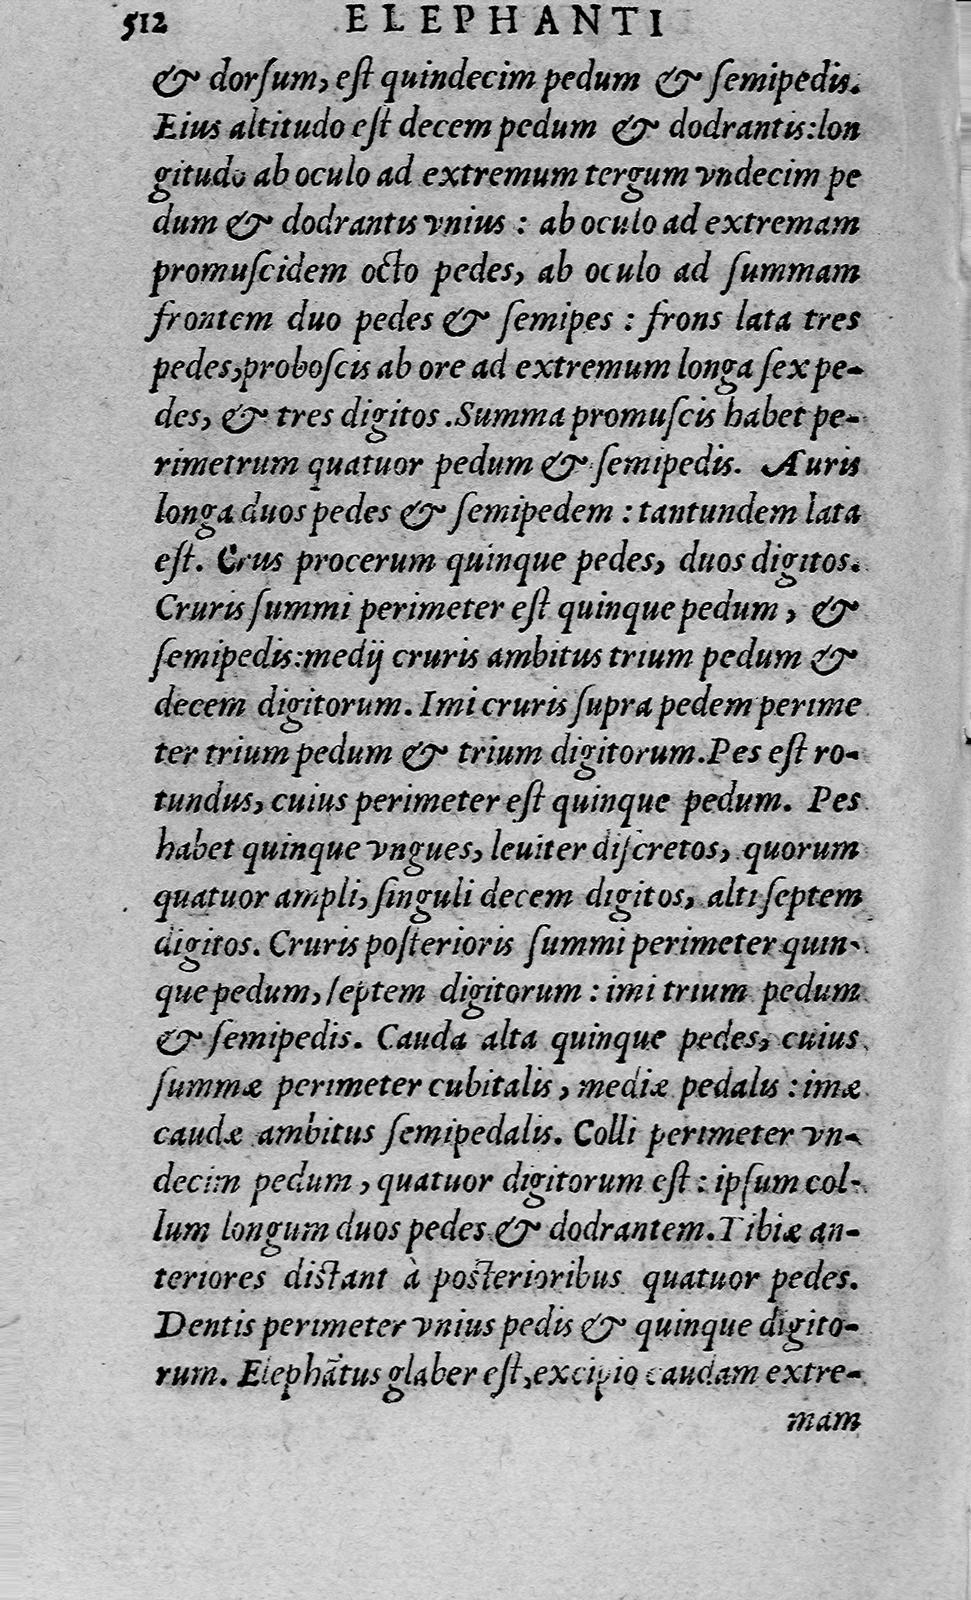 512 ELEPHANTI
& dorſum, eſt quindecim pedum & ſemipedis.
Eius altitudo eſt decem pedum & dodrantis: lon
gitudo ab oculo ad extremum tergum vndecim pe
dum & dodrantis vnius : ab oculo ad extremam
promuſcidem octo pedes, ab oculo ad ſummam
frontem duo pedes & ſemipes : frons lata tres
pedes, proboſcis ab ore ad extremum longa ſex pe-
des, & tres digitos. Summa promuſcis habet pe-
rimetrum quatuor pedum & ſemipedis. Auris
longa duos pedes & ſemipedem : tantundem lata
eſt. Crus procerum quinque pedes, duos digitos.
Cruris ſummi perimeter eſt quinque pedum, &
ſemipedis: medij cruris ambitus trium pedum &
decem digitorum. Imi cruris ſupra pedem perime
ter trium pedum & trium digitorum. Pes eſt ro-
tundus, cuius perimeter eſt quinque pedum. Pes
habet quinque vngues, leuiter diſcretos, quorum
quatuor ampli, ſinguli decem digitos, alti ſeptem
digitos. Cruris poſterioris ſummi perimeter quin-
que pedum, ſeptem digitorum : imi trium pedum
& ſemipedis. Cauda alta quinque pedes, cuius
ſummæ perimeter cubitalis, mediæ pedalis : imæ
caudæ ambitus ſemipedalis. Colli perimeter vn-
decim pedum, quatuor digitorum eſt : ipſum col-
lum longum duos pedes & dodrantem. Tibiæ an-
teriores diſtant à poſterioribus quatuor pedes.
Dentis perimeter vnius pedis & quinque digito-
rum. Elephãtus glaber eſt, excipio caudam extre-
mam